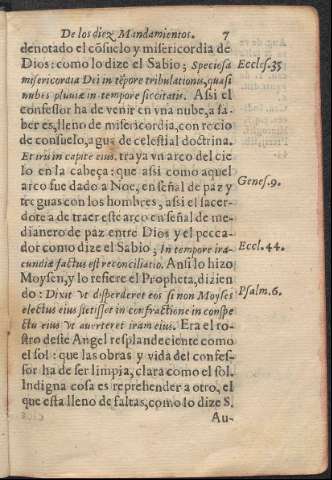 De los diez Mandamientos. 7
denotado el cõsuelo y misericordia de
Dios: como lo dize el Sabio; Speciosa
misericordia Dei in tẽpore tribulationis, quasi
nubes pluuiæ in tempore siccitatis. Assi el
confessor ha de venir en vna nube, a sa
ber es, lleno de misericordia, con rocio
de consuelo, agua de celestial doctrina.
Et iris in capite eius. traya vn arco del cie
lo en la cabeça: que assi como aquel
arco fue dado a Noe, en señal de paz y
treguas con los hombres, assi el sacer-
dote a de traer este arco en señal de me-
dianero de paz entre Dios y el pecca-
dor como dize el Sabio; In tempore ira-
cundiæ factus est reconciliatio. Ansi lo hizo
Moysen, y lo refiere el Propheta, dizien
do: Dixit vt disperderet eos si non Moyses
electus eius stetisset in confractione in conspe
ctu eius vt auerteret iram eius. Era el ro-
stro deste Angel resplandeciente como
el sol: que las obras y vida del confes-
sor ha de ser limpia, clara como el sol.
Indigna cosa es reprehender a otro, el
que esta lleno de faltas, como lo dize S.
Au-
Eccles. 35
Genes. 9.
Eccl. 44.
Psalm. 6.